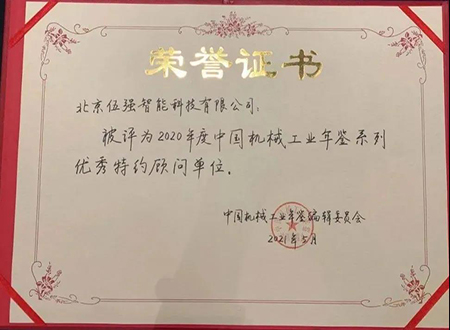 荣誉证书
北京伍强智能科技有限公司:
被评为2020年度中国机械工业年鉴系列
优秀特约顾问单位。
中国机械工业年鉴编辑委员会
2021年5月